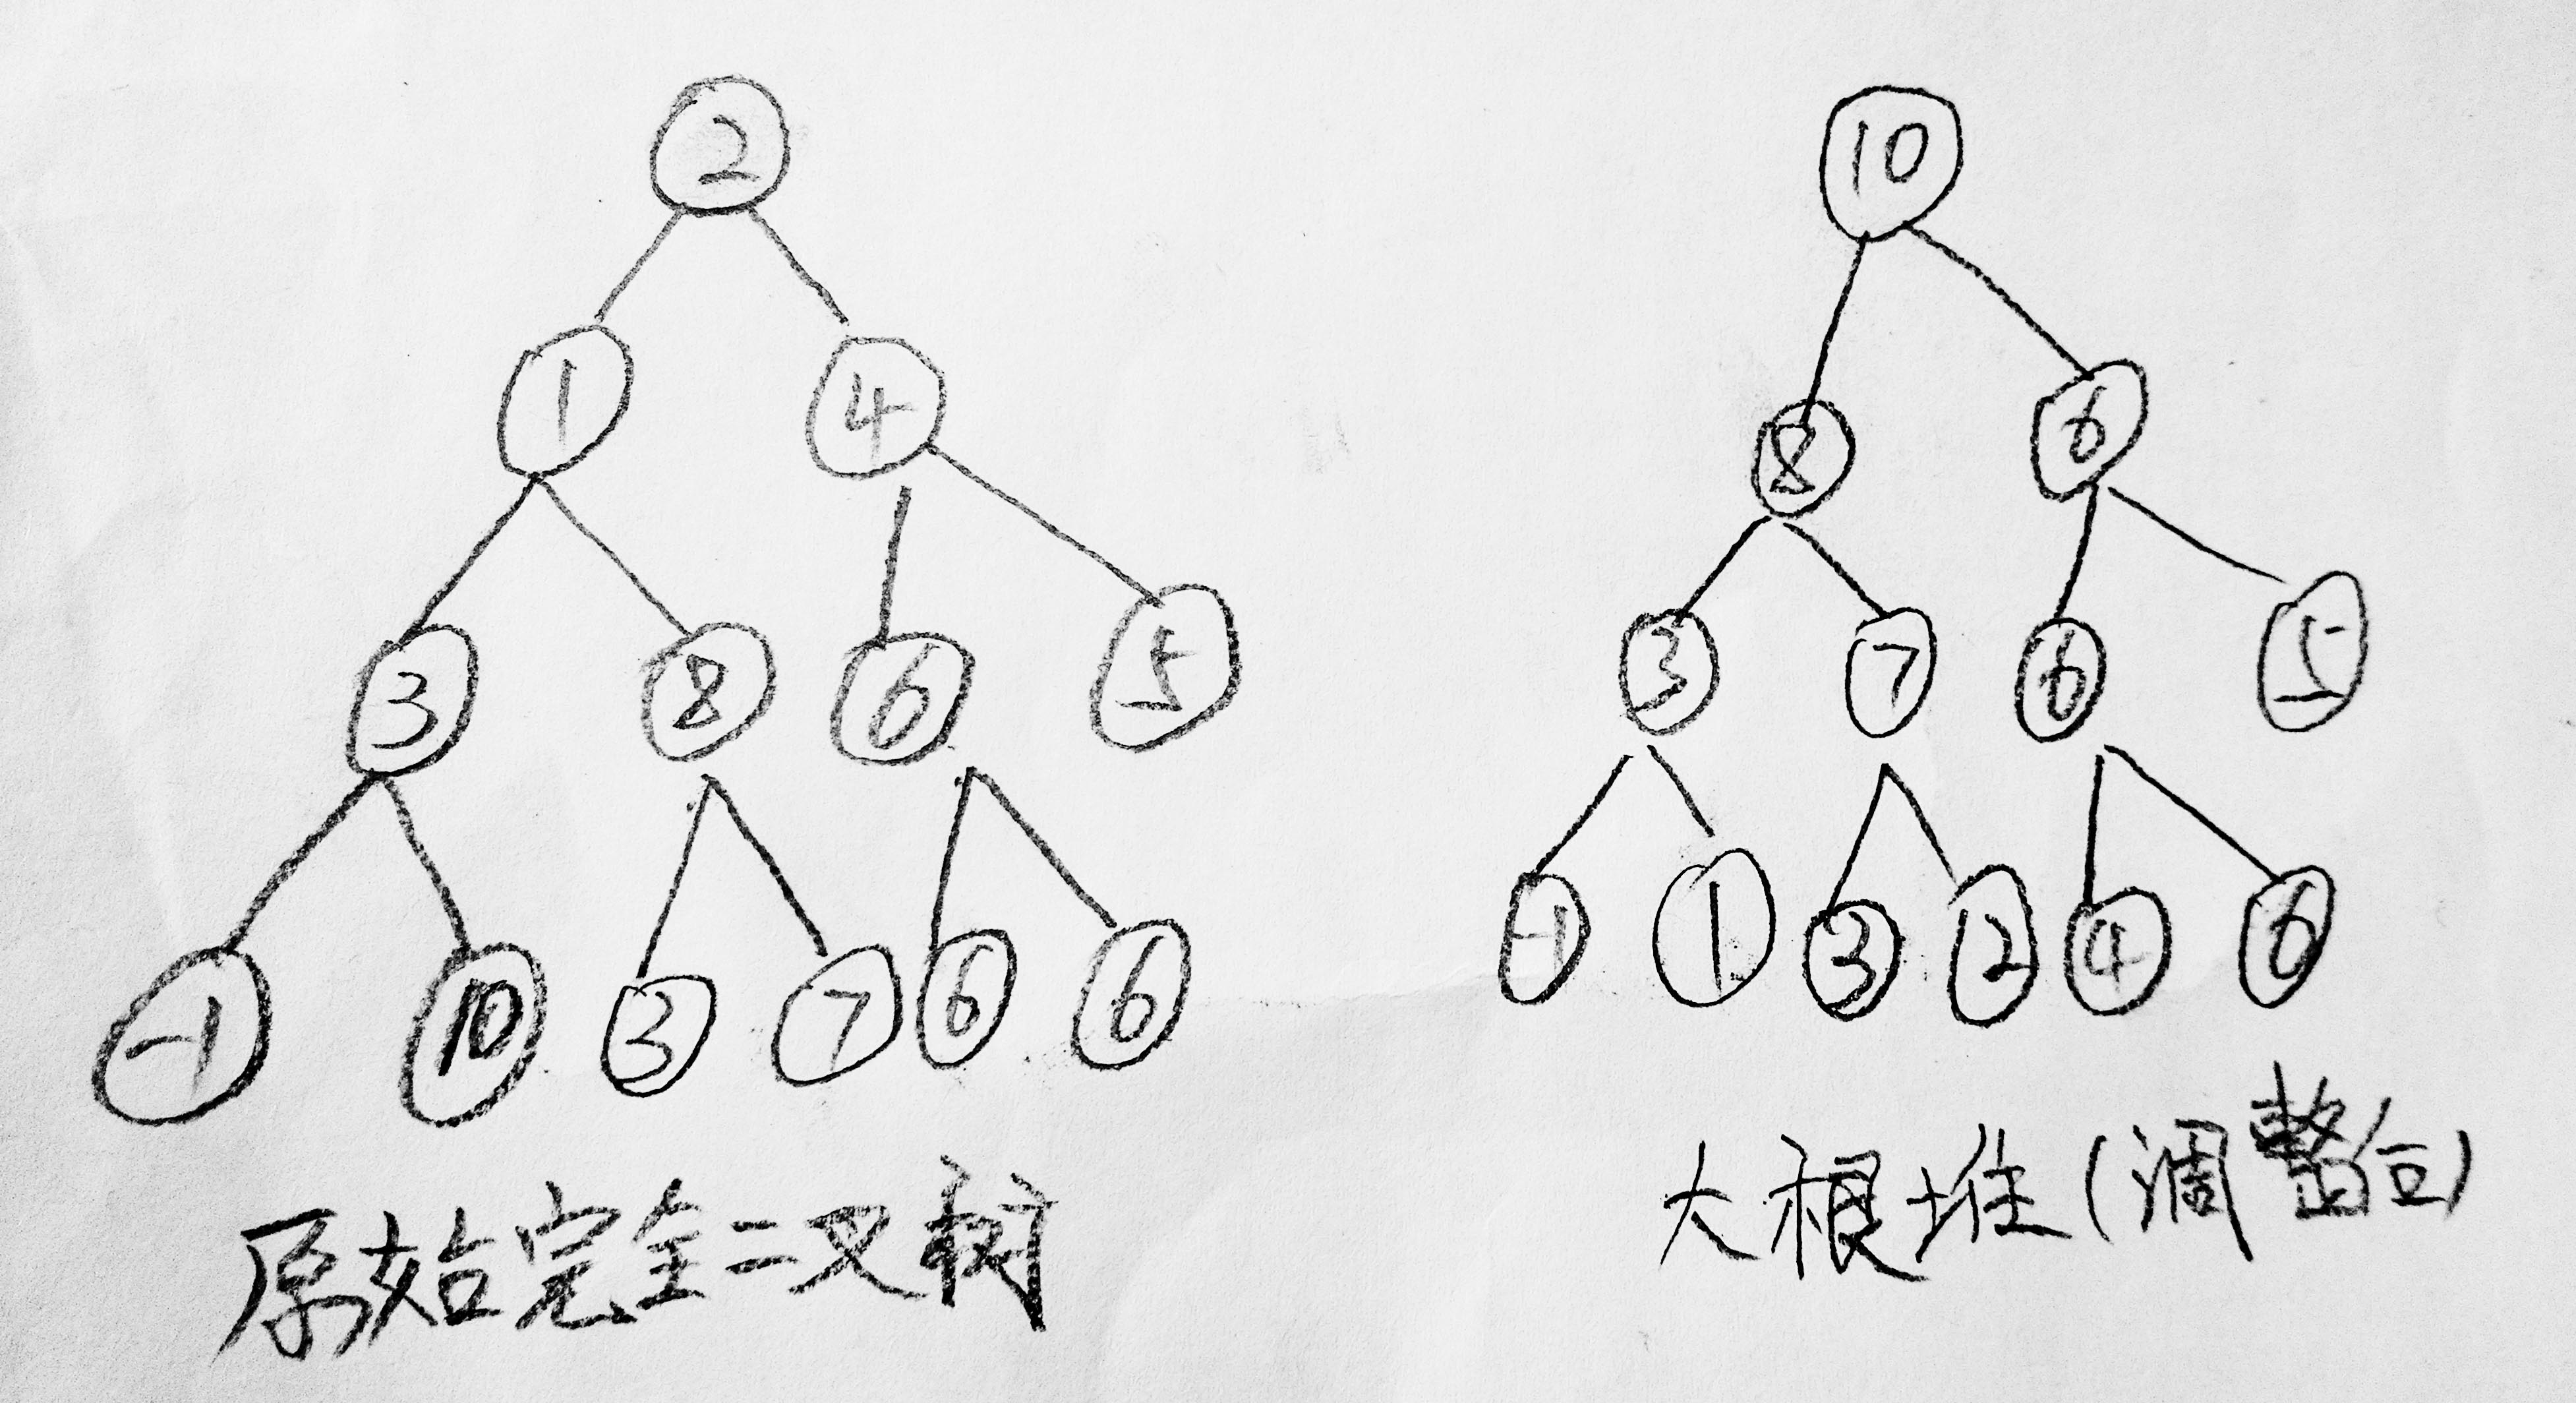 2
1 4
3 8 6 5
-1 10 3 7 6 6
原始完全二叉树
10
8 6
3 7 6 5
-1 1 3 2 4 6
大根堆(调整后)